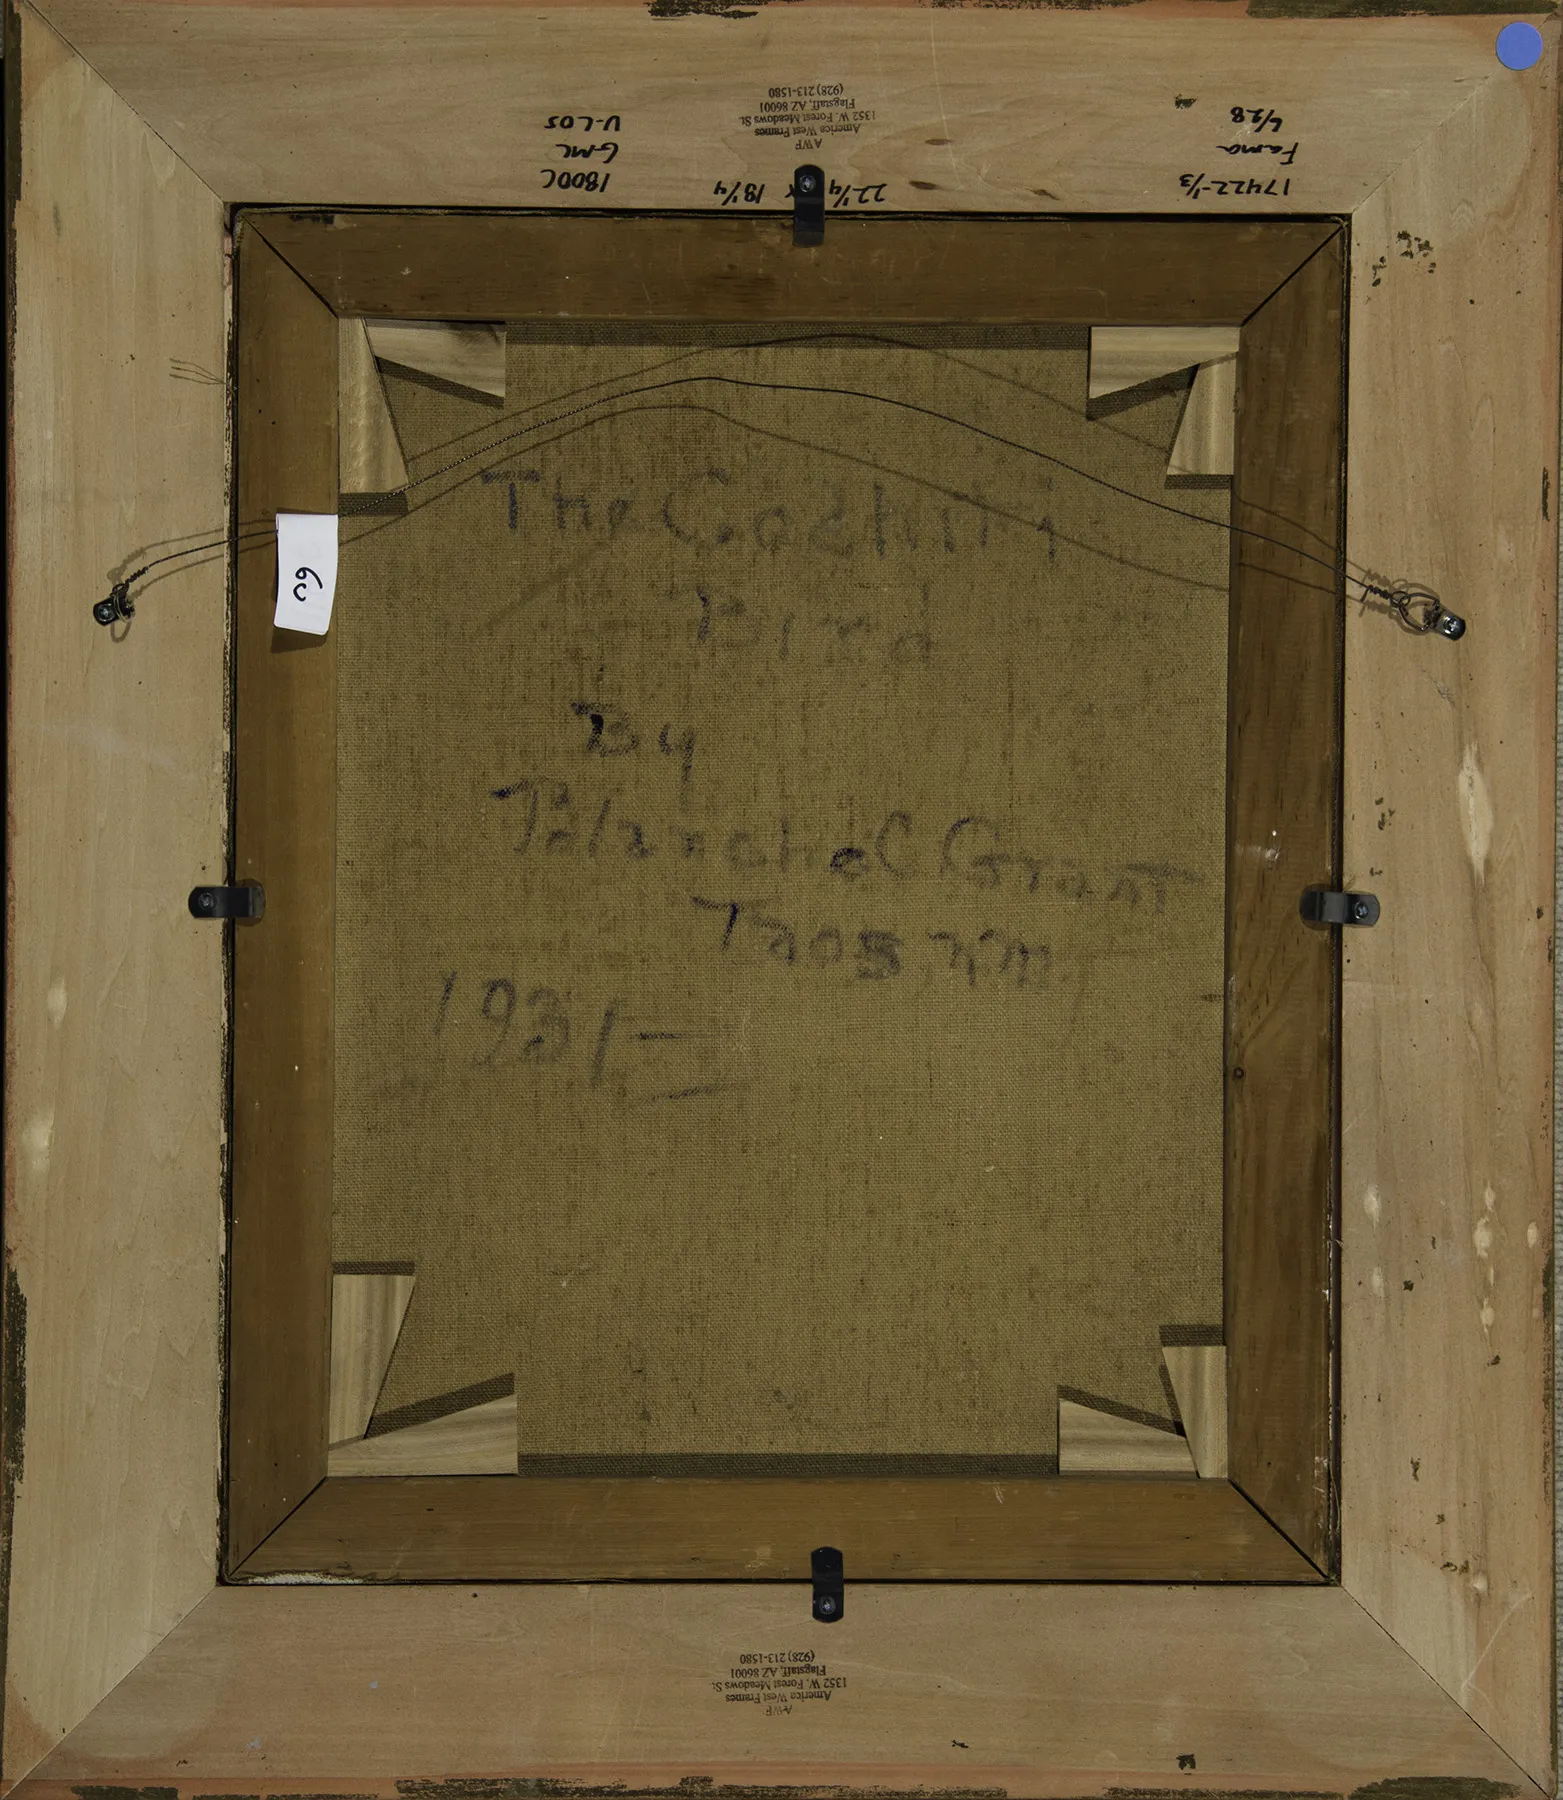 17422-1/3
Fama
6/28
22 1/4 x 18 1/4
1800C
GMC
U-LOS
AWF
America West Frames
1352 W. Forest Meadows St.
Flagstaff, AZ 86001
(928) 213-1580
60
The Cochiti
Bird
By
Blanche C Grant
Taos N.M.
1931 —
AWF
America West Frames
1352 W. Forest Meadows St.
Flagstaff, AZ 86001
(928) 213-1580